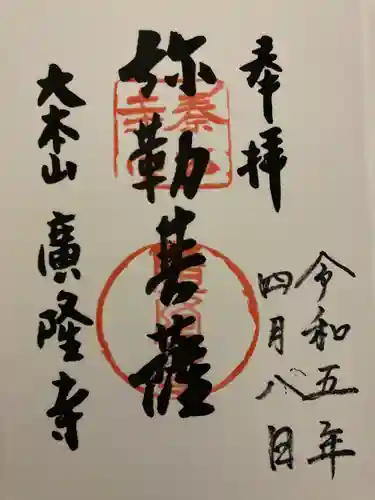 奉拝
令和五年
四月八日
弥勒菩薩
大本山 廣隆寺